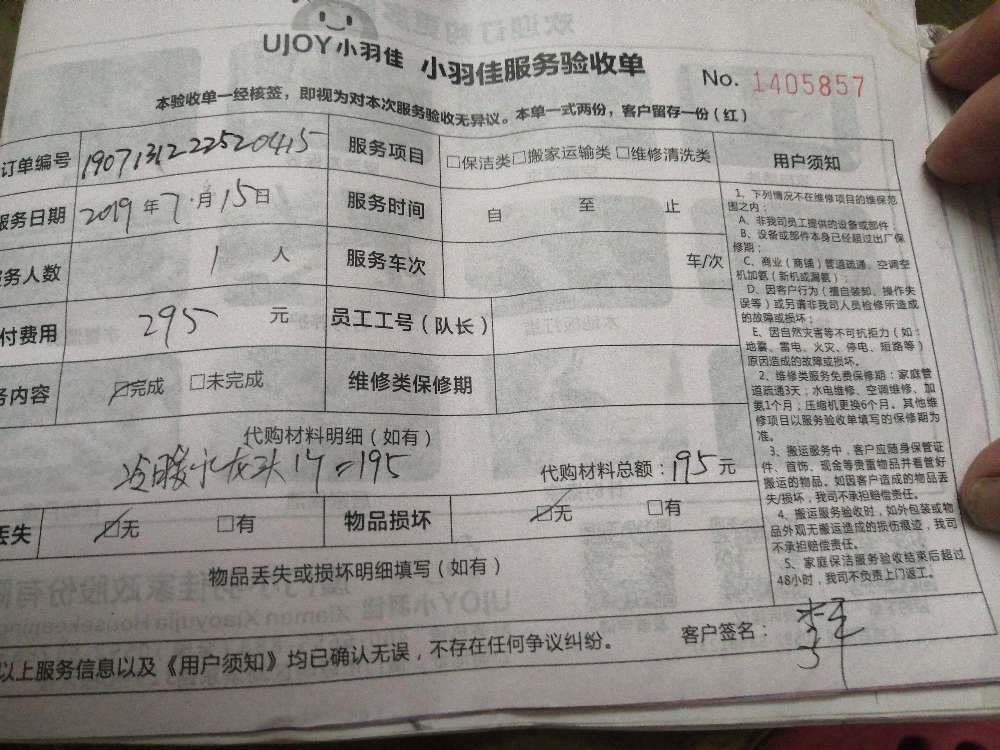 UJOY小羽佳 小羽佳服务验收单 No. 1405857
本验收单一经核签，即视为对本次服务验收无异议。本单一式两份，客户留存一份（红）
订单编号 1907131222520415 服务项目 □保洁类□搬家运输类□维修清洗类 用户须知
服务日期 2019年7月15日 服务时间 自 至 止
务人数 1 人 服务车次 车/次
付费用 295 元 员工工号（队长）
务内容 ☑完成 □未完成 维修类保修期
代购材料明细（如有）
冷暖水龙头1个=195 代购材料总额：195元
丢失 ☑无 □有 物品损坏 ☑无 □有
物品丢失或损坏明细填写（如有）
以上服务信息以及《用户须知》均已确认无误，不存在任何争议纠纷。 客户签名：
1、下列情况不在维修项目的维保范
围之内：
A、非我司员工提供的设备或部件；
B、设备或部件本身已经超过出厂保
修期；
C、商业（商铺）管道疏通、空调空
机加氨（新机或漏氨）
D、因客户行为（擅自装卸、操作失
误等）或另请非我司人员检修所造成
的故障或损坏；
E、因自然灾害等不可抗拒力（如：
地震、雷电、火灾、停电、短路等）
原因造成的故障或损坏。
2、维修类服务免费保修期：家庭管
道疏通3天；水电维修、空调维修、加
氨1个月；压缩机更换6个月。其他维
修项目以服务验收单填写的保修期为
准。
3、搬运服务中，客户应随身保管证
件、首饰、现金等贵重物品并看管好
搬运的物品。如因客户造成的物品丢
失/损坏，我司不承担赔偿责任。
4、搬运服务验收时，如外包装或物
品外观无搬运造成的损伤痕迹，我司
不承担赔偿责任。
5、家庭保洁服务验收结束后超过
48小时，我司不负责上门返工。